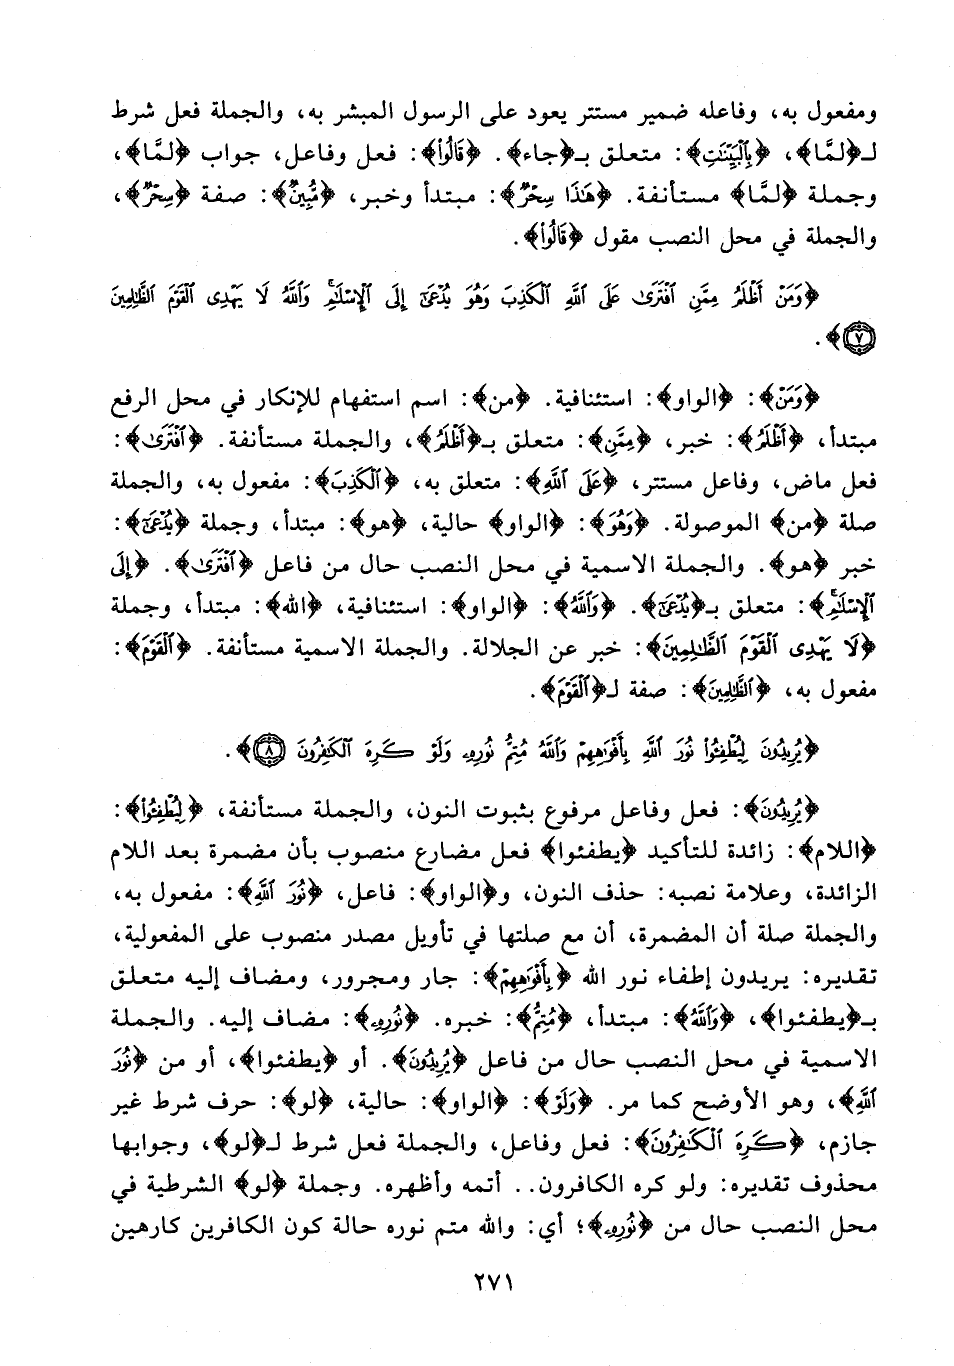 ومفعول به، وفاعله ضمير مستتر يعود على الرسول المبشر به، والجملة فعل شرط
لـ﴿لمَّا﴾، ﴿بِٱلْبَيِّنَٰتِ﴾: متعلق بـ﴿جاء﴾. ﴿قَالُوا۟﴾: فعل وفاعل، جواب ﴿لمَّا﴾،
وجملة ﴿لمَّا﴾ مستأنفة. ﴿هَٰذَا سِحْرٌ﴾: مبتدأ وخبر، ﴿مُّبِينٌ﴾: صفة ﴿سِحْرٌ﴾،
والجملة في محل النصب مقول ﴿قَالُوا۟﴾.
﴿وَمَنْ أَظْلَمُ مِمَّنِ ٱفْتَرَىٰ عَلَى ٱللَّهِ ٱلْكَذِبَ وَهُوَ يُدْعَىٰٓ إِلَى ٱلْإِسْلَٰمِ ۚ وَٱللَّهُ لَا يَهْدِى ٱلْقَوْمَ ٱلظَّٰلِمِينَ
٧﴾.
﴿وَمَنْ﴾: ﴿الواو﴾: استئنافية. ﴿من﴾: اسم استفهام للإنكار في محل الرفع
مبتدأ، ﴿أَظْلَمُ﴾: خبر، ﴿مِمَّنِ﴾: متعلق بـ﴿أَظْلَمُ﴾، والجملة مستأنفة. ﴿ٱفْتَرَىٰ﴾:
فعل ماض، وفاعل مستتر، ﴿عَلَى ٱللَّهِ﴾: متعلق به، ﴿ٱلْكَذِبَ﴾: مفعول به، والجملة
صلة ﴿من﴾ الموصولة. ﴿وَهُوَ﴾: ﴿الواو﴾ حالية، ﴿هو﴾: مبتدأ، وجملة ﴿يُدْعَىٰٓ﴾:
خبر ﴿هو﴾. والجملة الاسمية في محل النصب حال من فاعل ﴿ٱفْتَرَىٰ﴾. ﴿إِلَى
ٱلْإِسْلَٰمِ ۚ﴾: متعلق بـ﴿يُدْعَىٰٓ﴾. ﴿وَٱللَّهُ﴾: ﴿الواو﴾: استئنافية، ﴿الله﴾: مبتدأ، وجملة
﴿لَا يَهْدِى ٱلْقَوْمَ ٱلظَّٰلِمِينَ﴾: خبر عن الجلالة. والجملة الاسمية مستأنفة. ﴿ٱلْقَوْمَ﴾:
مفعول به، ﴿ٱلظَّٰلِمِينَ﴾: صفة لـ﴿ٱلْقَوْمَ﴾.
﴿يُرِيدُونَ لِيُطْفِـُٔوا۟ نُورَ ٱللَّهِ بِأَفْوَٰهِهِمْ وَٱللَّهُ مُتِمُّ نُورِهِۦ وَلَوْ كَرِهَ ٱلْكَٰفِرُونَ ٨﴾.
﴿يُرِيدُونَ﴾: فعل وفاعل مرفوع بثبوت النون، والجملة مستأنفة، ﴿لِيُطْفِـُٔوا۟﴾:
﴿اللام﴾: زائدة للتأكيد ﴿يطفئوا﴾ فعل مضارع منصوب بأن مضمرة بعد اللام
الزائدة، وعلامة نصبه: حذف النون، و﴿الواو﴾: فاعل، ﴿نُورَ ٱللَّهِ﴾: مفعول به،
والجملة صلة أن المضمرة، أن مع صلتها في تأويل مصدر منصوب على المفعولية،
تقديره: يريدون إطفاء نور الله ﴿بِأَفْوَٰهِهِمْ﴾: جار ومجرور، ومضاف إليه متعلق
بـ﴿يطفئوا﴾، ﴿وَٱللَّهُ﴾: مبتدأ، ﴿مُتِمُّ﴾: خبره. ﴿نُورِهِۦ﴾: مضاف إليه. والجملة
الاسمية في محل النصب حال من فاعل ﴿يُرِيدُونَ﴾. أو ﴿يطفئوا﴾، أو من ﴿نُورَ
ٱللَّهِ﴾، وهو الأوضح كما مر. ﴿وَلَوْ﴾: ﴿الواو﴾: حالية، ﴿لو﴾: حرف شرط غير
جازم، ﴿كَرِهَ ٱلْكَٰفِرُونَ﴾: فعل وفاعل، والجملة فعل شرط لـ﴿لو﴾، وجوابها
محذوف تقديره: ولو كره الكافرون.. أتمه وأظهره. وجملة ﴿لو﴾ الشرطية في
محل النصب حال من ﴿نُورِهِۦ﴾؛ أي: والله متم نوره حالة كون الكافرين كارهين
٢٧١